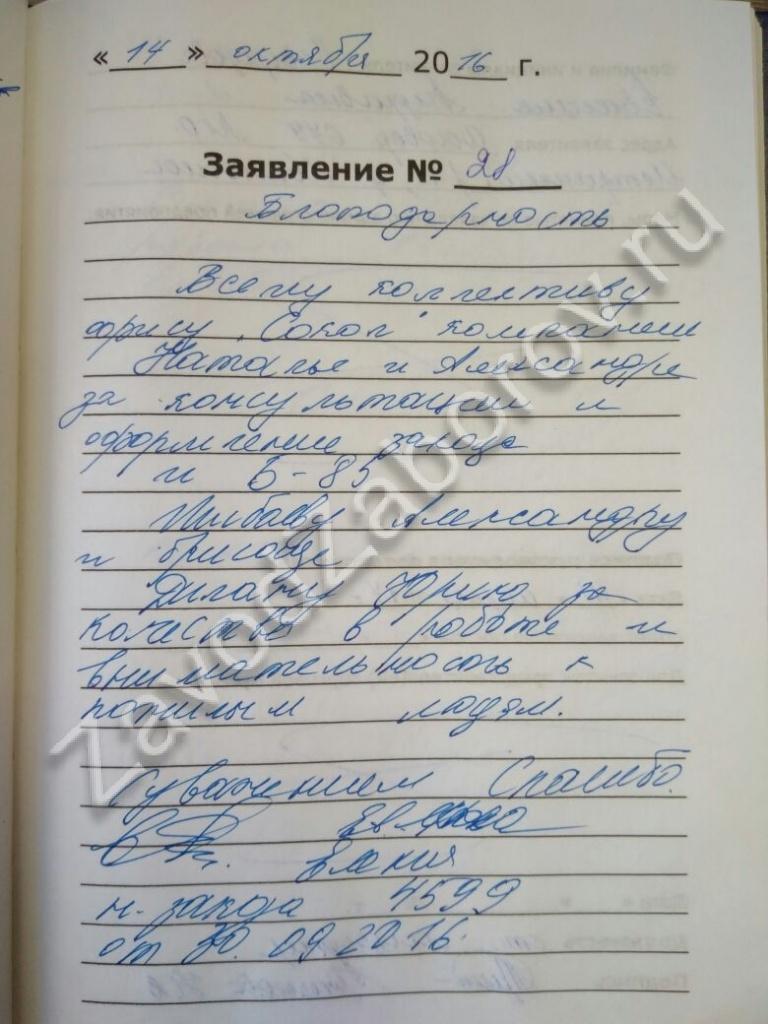 « 14 » октября 2016 г.
Заявление № 28
Благодарность
Всему коллективу
офису "Сокол" компании
Наталье и Александре
за консультации и
оформление заказа
и Б-85
Александру
и бригаде
Юрию за
качество в работе и
внимательность к
пожилым людям.
С уважением Спасибо.
н. заказа 4599
от 30.09.2016.
ZavodZaborov.ru